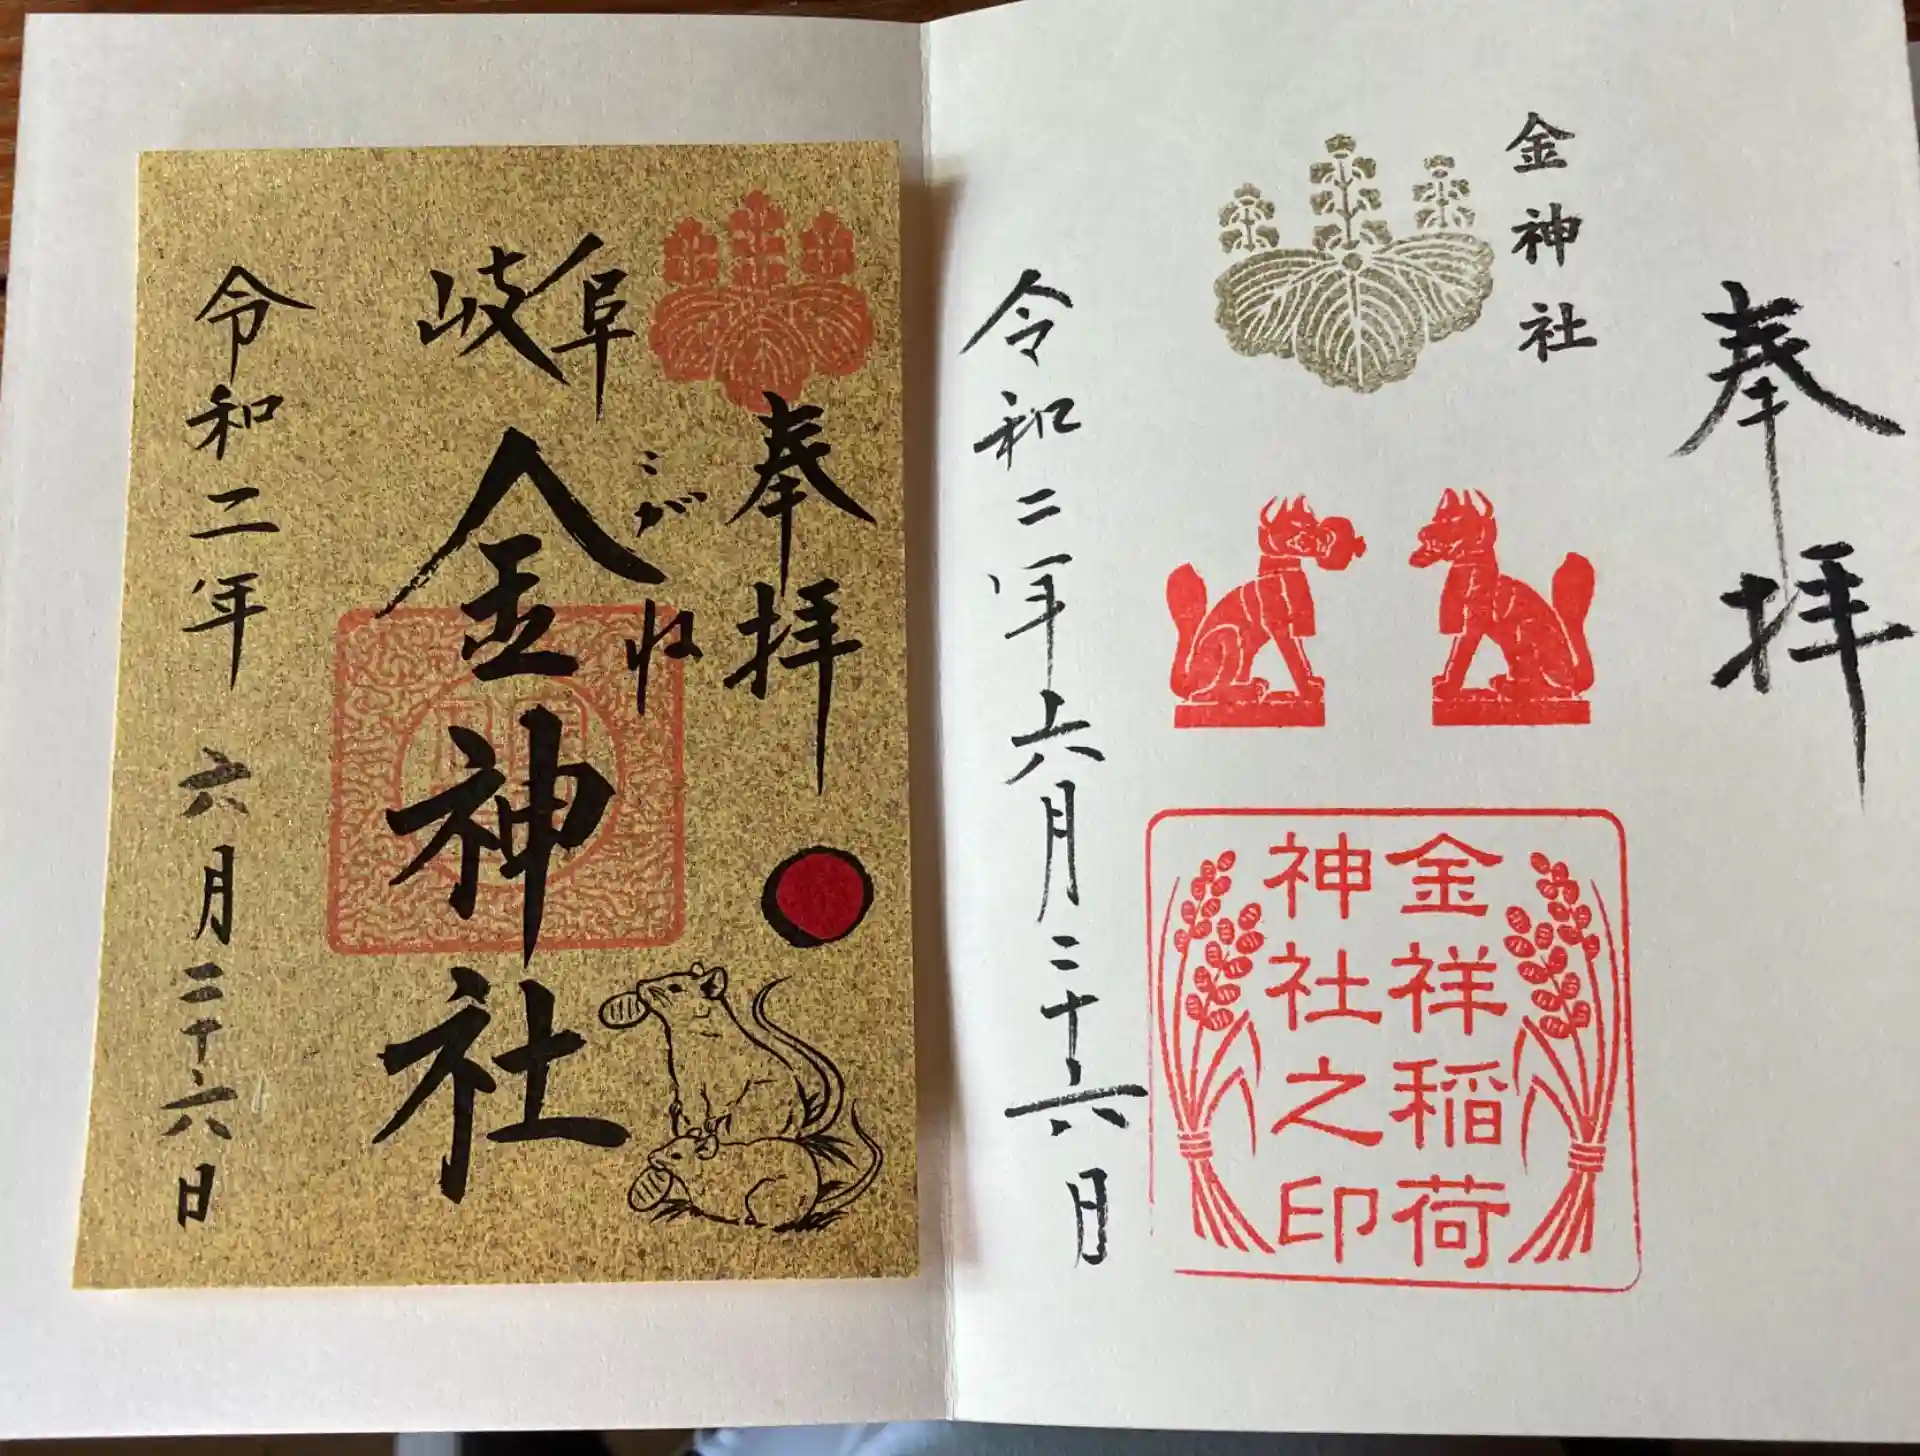 奉拝
金神社
金祥稲荷
神社之印
令和二年六月二十六日
奉拝
こがね
岐阜
金神社
令和二年六月二十六日